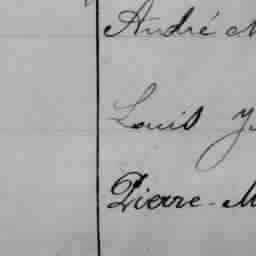 André
Louis
Pierre-M